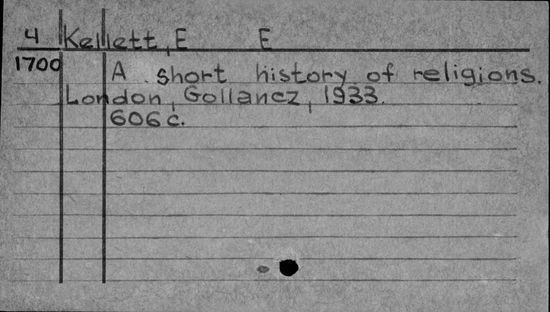 4 Kellett, E E
1700 A short history of religions.
London, Gollancz, 1933.
606 c.